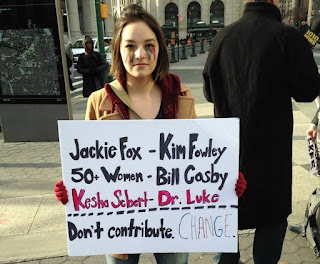 Jackie Fox - Kim Fowley
50+ Women - Bill Cosby
Kesha Sebert - Dr. Luke
Don't contribute. CHANGE.